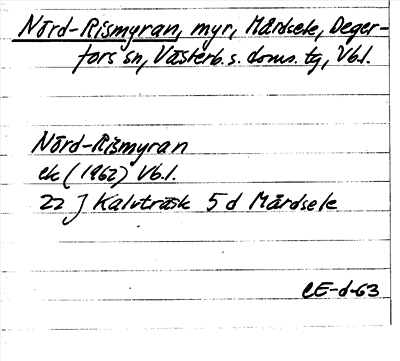 Nörd-Rismyran, myr, Mårdsele, Deger-
fors sn, Västerb. s. doms. tg, Vb.l.
Nörd-Rismyran
ek (1962) Vb.l.
22 J Kalvträsk 5 d Mårdsele
CE-d-63